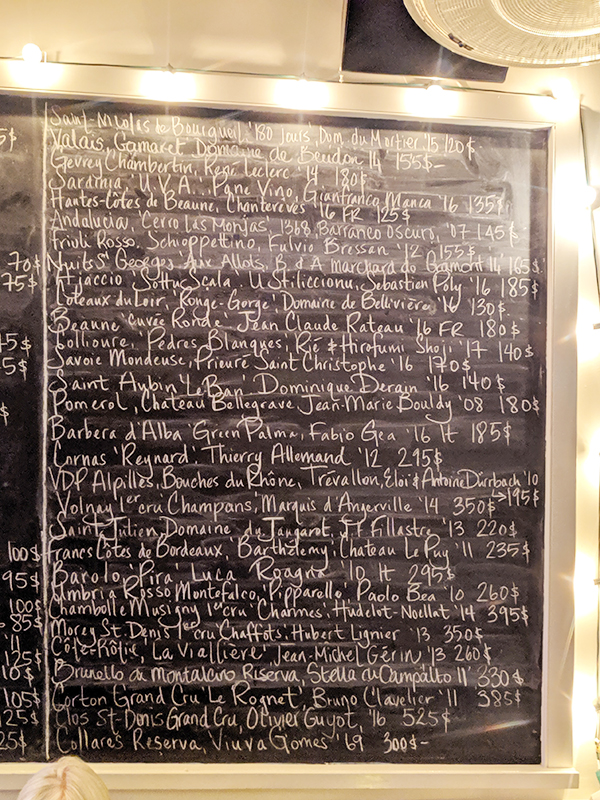 5$
70$
75$
45$
5$
$
100$
95$
100$
85$
$
125$
110$
105$
125$
25$
Saint-Nicolas de Bourgueil, '180 Jours', Dom. du Mortier '15 120$-
Valais, Gamaret Domaine de Beudon '14 155$-
Gevrey Chambertin, René Leclerc '14 180$
Sardinia, U.V.A., Pane Vino, Gianfranco Manca '16 135$
Hautes-Côtes de Beaune, Chantereves '16 FR 125$
Andalucia, 'Cerro Las Monjas', 1368, Barranco Oscuro, '07 145$-
Friuli Rosso, Schioppettino, Fulvio Bressan '12 155$
Nuits St Georges 'Aux Allots', B. d. A marchard de Gramont 11' 165$
Ajaccio 'Sottu Scala', U Stiliccionu, Sebastien Poly '16 185$
Coteaux du Loir, 'Rouge-Gorge' Domaine de Bellivière '16 130$
Beaune cuvée Ronde, Jean Claude Rateau '16 FR 180$
Collioure, Pedres Blanques, Rié & Hirofumi Shoji '17 140$
Savoie Mondeuse, Prieuré Saint Christophe '16 170$
Saint Aubin 'Le Ban' Dominique Derain '16 140$
Pomerol, Chateau Bellegrave, Jean-Marie Bouldy '08 180$
Barbera d'Alba 'Green Palma, Fabio Gea '16 It 185$
Cornas 'Reynard' Thierry Allemand '12 295$
VDP Alpilles, Bouches du Rhône, Trévallon, Eloi & Antoine Dürrbach '10
→195$
Volnay 1er cru 'Champans', Marquis d'Angerville '14 350$
Saint Julien, Domaine du Jaugaret, J.F Fillastre '13 220$
Francs Côtes de Bordeaux 'Barthélemy', Chateau Le Puy '11 235$
Barolo 'Pira' Luca Roagna '10 It 295$
Umbria Rosso Montefalco, 'Pipparello' Paolo Bea '10 260$
Chambolle Musigny 1er cru 'Charmes', Hudelot-Noellat '14 395$
Morey St. Denis 1er cru 'Chaffots', Hubert Lignier '13 350$
Côte-Rôtie, La Viallière', Jean-Michel Gérin '13 260$
Brunello di Montalcino Riserva, Stella di Campalto 11' 330$
Corton Grand Cru 'Le Rognet', Bruno Clavelier '11 385$
Clos St-Denis Grand Cru, Olivier Guyot, '16 525$
Collares Reserva, Viuva Gomes '69 300$-